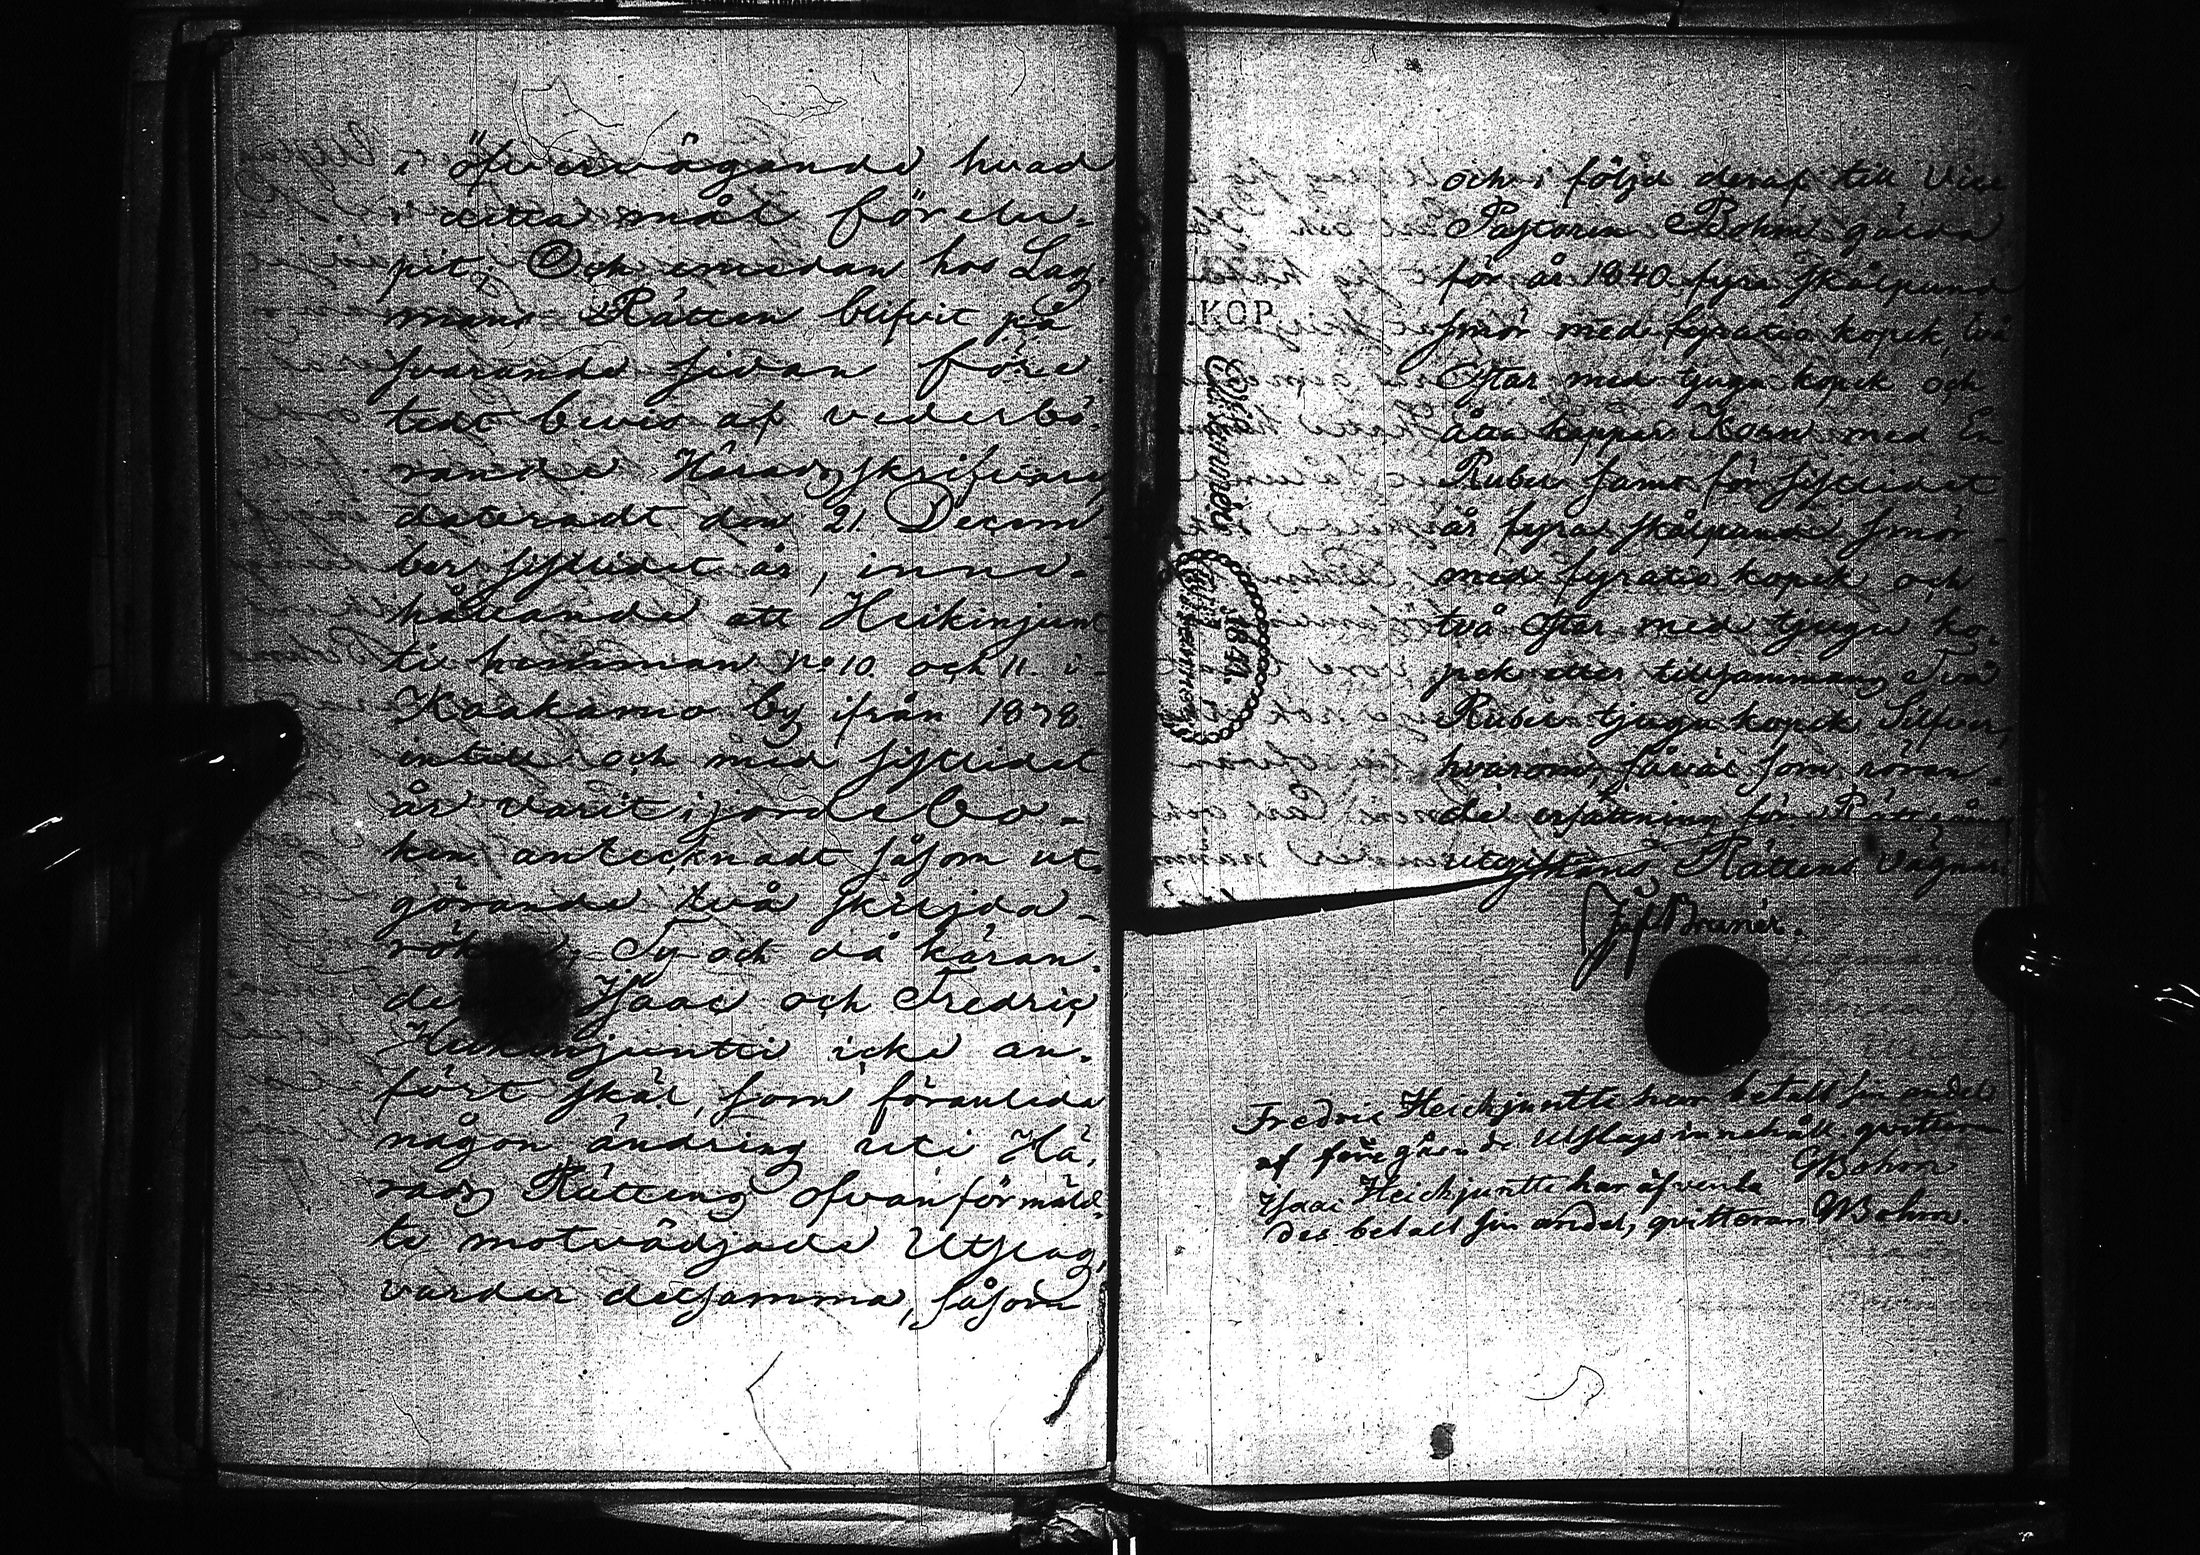 i öfvervägande hvad
i detta mål förelu-
pit; Och emedan hos Lag-
mans Rätten blifvit på
svarande sidan före-
tedt bevis af vederbö-
rande Häradsskrifvare,
dateradt den 21 Decem-
ber sistlidet år, inne-
hållande att Heikinjunt-
ti hemman No 10. och 11. i
Kaakamo by ifrån 1878
intill och med sistlidet
år varit i jordebo-
ken antecknadt såsom ut-
görande två skiljda
Ty och då käran-
Isaac och Fredric
Heikinjuntti icke an-
fört skäl, som föranleda
någon ändring uti Hä-
rads Rättens ofvanförmäld-
te motvädjade Utslag,
varder detsamma, såsom
och i följd deraf till Vice
Pastoren Bohm gälda
för år 1840 fyra skålpund
smör med fyratio kopek, två
Ostar med tjugu kopek och
åtta kappar Korn med En
Rubel samt för sistlidet
år fyra skålpund smör
med fyratio kopek och
två Ostar med tjugu ko-
pek eller tillsammans Två
Rubel tjugu kopek Silfver,
hvarom, såväl som röran-
de ersättning för Rättegångs
Rättens vägnar.
KOP.
1841.
Fredric Heickjuntti har betalt sin andel
af föregående Utslags innehåll. qvitteras
GBohm
Isaac Heickjuntti har äfvenle
des betalt sin andel, qvitteras GBohm.